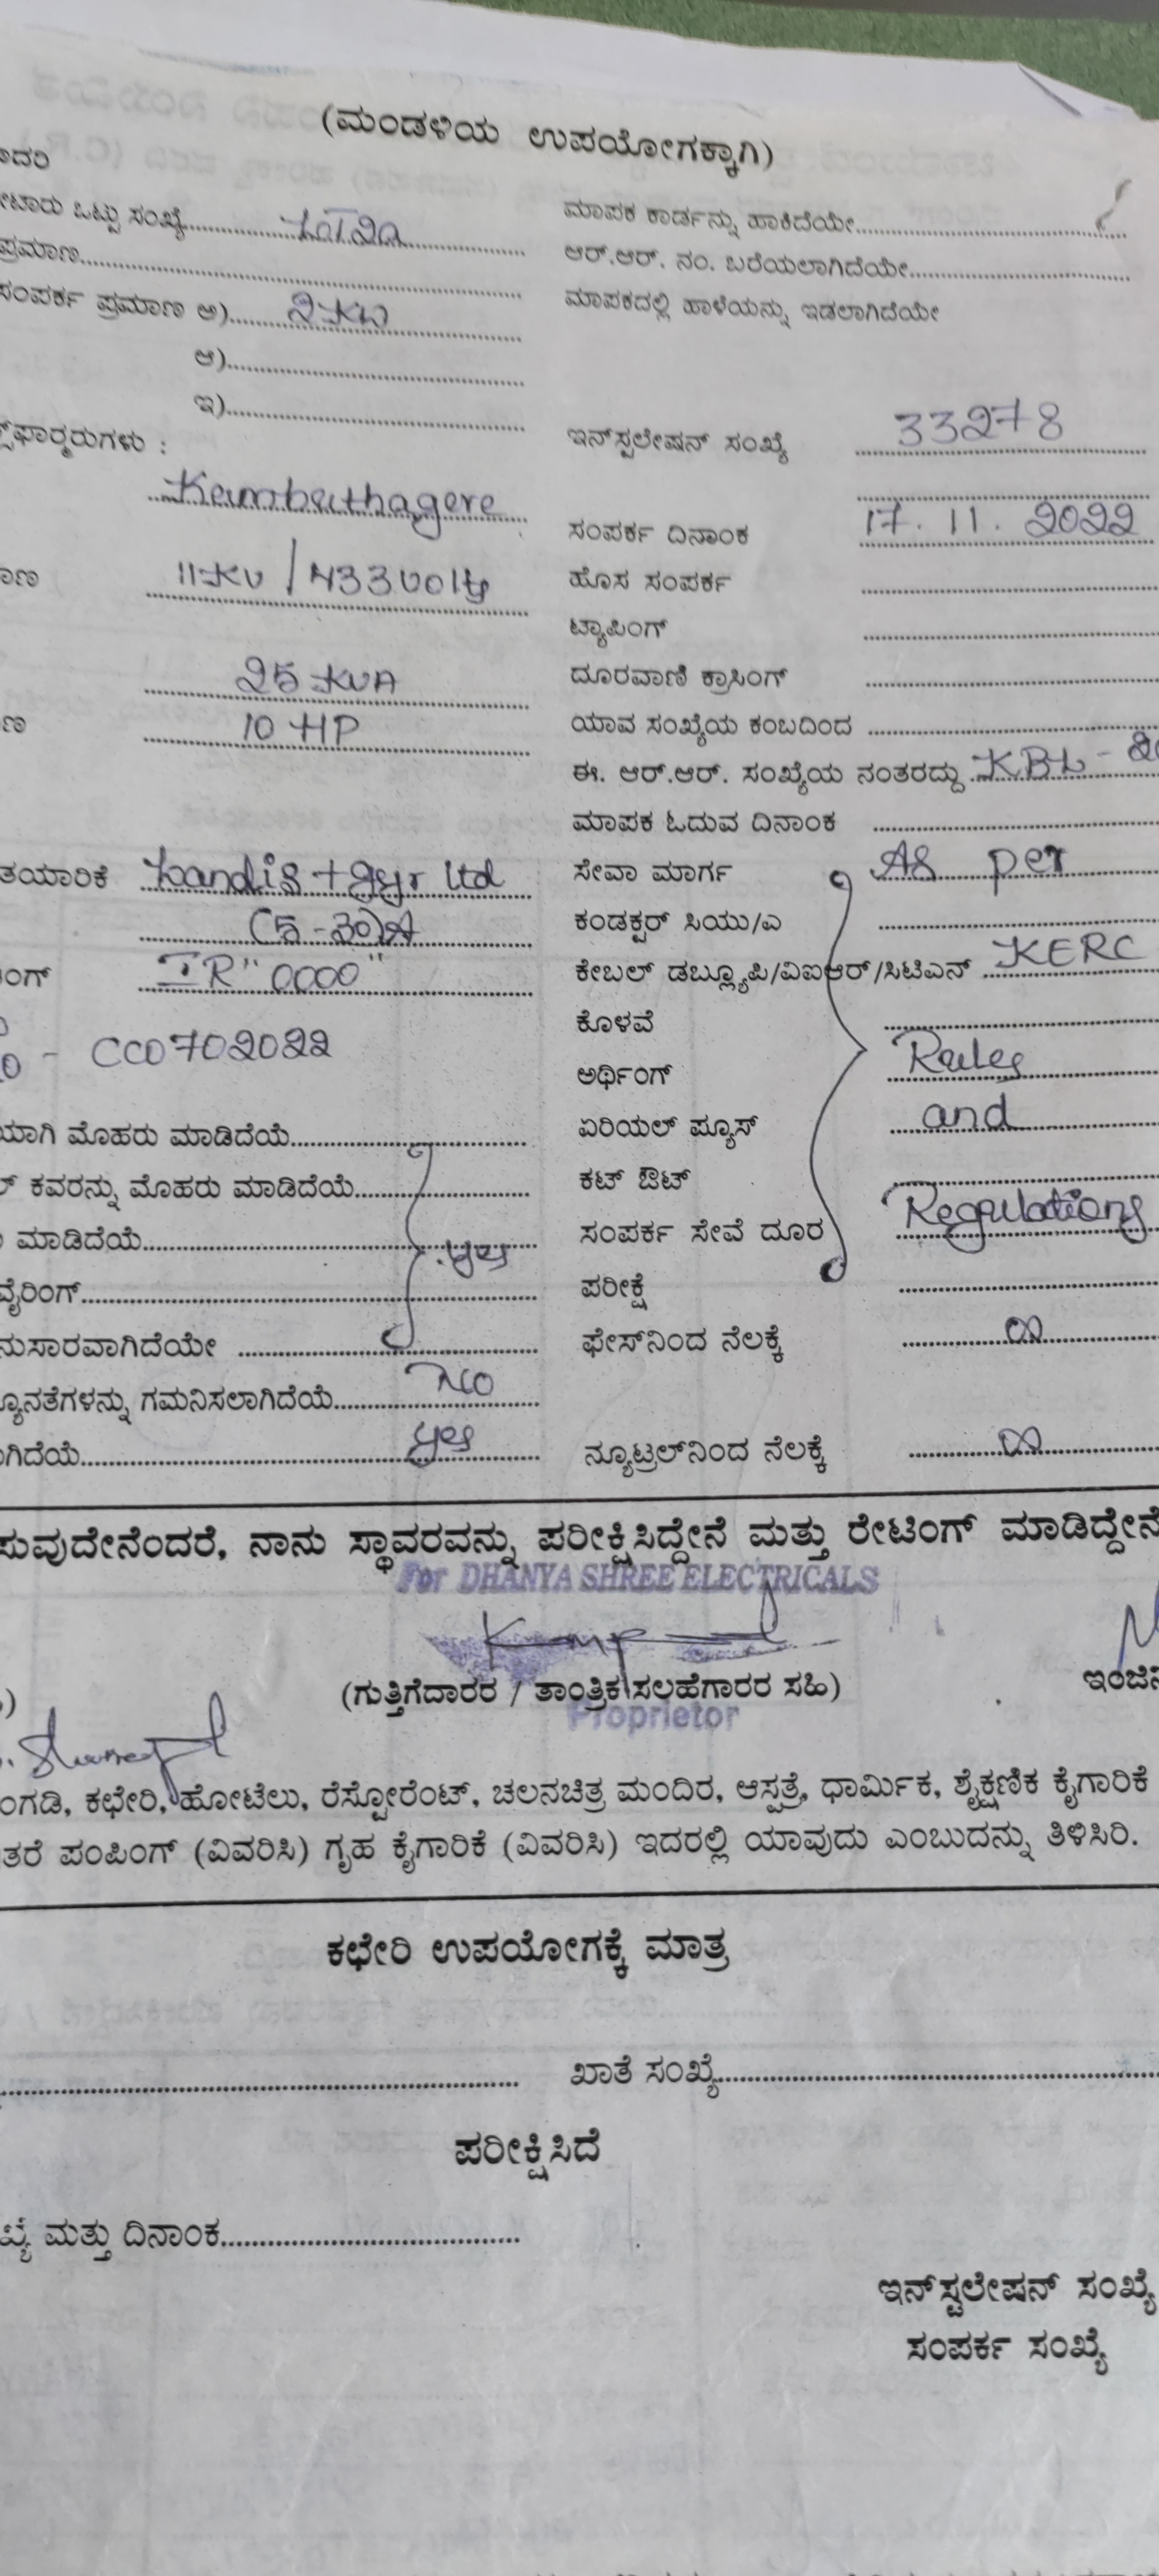 (ಮಂಡಳಿಯ ಉಪಯೋಗಕ್ಕಾಗಿ)
ಾದರಿ
ಒಟ್ಟು ಸಂಖ್ಯೆ
ಮಾಪಕ ಕಾರ್ಡನ್ನು ಹಾಕಿದೆಯೇ
ಪ್ರಮಾಣ
ಆರ್.ಆರ್. ನಂ. ಬರೆಯಲಾಗಿದೆಯೇ
ಸಂಪರ್ಕ ಪ್ರಮಾಣ ಅ) 2 KW
ಮಾಪಕದಲ್ಲಿ ಹಾಳೆಯನ್ನು ಇಡಲಾಗಿದೆಯೇ
ಆ)
ಇ)
ಫಾರ್ಮರುಗಳು :
ಇನ್‌ಸ್ಟಲೇಷನ್ ಸಂಖ್ಯೆ 33278
Kambathagere
ಸಂಪರ್ಕ ದಿನಾಂಕ 17.11.2022
ಾಣ 11 KV / 433 Volts
ಹೊಸ ಸಂಪರ್ಕ
ಟ್ಯಾಪಿಂಗ್
25 KVA
ದೂರವಾಣಿ ಕ್ರಾಸಿಂಗ್
ಣ 10 HP
ಯಾವ ಸಂಖ್ಯೆಯ ಕಂಬದಿಂದ
ಈ. ಆರ್.ಆರ್. ಸಂಖ್ಯೆಯ ನಂತರದ್ದು KBL -
ಮಾಪಕ ಓದುವ ದಿನಾಂಕ
ತಯಾರಿಕೆ Landis + gyr Ltd
ಸೇವಾ ಮಾರ್ಗ As per
(5-30)A
ಕಂಡಕ್ಟರ್ ಸಿಯು/ಎ
ಂಗ್ IR "0000"
ಕೇಬಲ್ ಡಬ್ಲ್ಯೂಪಿ/ವಿಐಆರ್/ಸಿಟಿಎನ್ KERC
- CC0702022
ಕೊಳವೆ
ಅರ್ಥಿಂಗ್ Rules
ಯಾಗಿ ಮೊಹರು ಮಾಡಿದೆಯೆ
ಏರಿಯಲ್ ಫ್ಯೂಸ್ and
ಲ್ ಕವರನ್ನು ಮೊಹರು ಮಾಡಿದೆಯೆ
ಕಟ್ ಔಟ್
ಮಾಡಿದೆಯೆ yes
ಸಂಪರ್ಕ ಸೇವೆ ದೂರ Regulations
ವೈರಿಂಗ್
ಪರೀಕ್ಷೆ
ನುಸಾರವಾಗಿದೆಯೇ
ಫೇಸ್‌ನಿಂದ ನೆಲಕ್ಕೆ ∞
ನ್ಯೂನತೆಗಳನ್ನು ಗಮನಿಸಲಾಗಿದೆಯೆ No
ಗಿದೆಯೆ yes
ನ್ಯೂಟ್ರಲ್‌ನಿಂದ ನೆಲಕ್ಕೆ ∞
ಸುವುದೇನೆಂದರೆ, ನಾನು ಸ್ಥಾವರವನ್ನು ಪರೀಕ್ಷಿಸಿದ್ದೇನೆ ಮತ್ತು ರೇಟಿಂಗ್ ಮಾಡಿದ್ದೇನೆ
For DHANYA SHREE ELECTRICALS
(ಗುತ್ತಿಗೆದಾರರ / ತಾಂತ್ರಿಕ ಸಲಹೆಗಾರರ ಸಹಿ)
ಇಂಜಿನಿ
Proprietor
ಂಗಡಿ, ಕಛೇರಿ, ಹೋಟೆಲು, ರೆಸ್ಟೋರೆಂಟ್, ಚಲನಚಿತ್ರ ಮಂದಿರ, ಆಸ್ಪತ್ರೆ, ಧಾರ್ಮಿಕ, ಶೈಕ್ಷಣಿಕ ಕೈಗಾರಿಕೆ
ತರೆ ಪಂಪಿಂಗ್ (ವಿವರಿಸಿ) ಗೃಹ ಕೈಗಾರಿಕೆ (ವಿವರಿಸಿ) ಇದರಲ್ಲಿ ಯಾವುದು ಎಂಬುದನ್ನು ತಿಳಿಸಿರಿ.
ಕಛೇರಿ ಉಪಯೋಗಕ್ಕೆ ಮಾತ್ರ
ಖಾತೆ ಸಂಖ್ಯೆ
ಪರೀಕ್ಷಿಸಿದೆ
ಖ್ಯೆ ಮತ್ತು ದಿನಾಂಕ
ಇನ್‌ಸ್ಟಲೇಷನ್ ಸಂಖ್ಯೆ
ಸಂಪರ್ಕ ಸಂಖ್ಯೆ